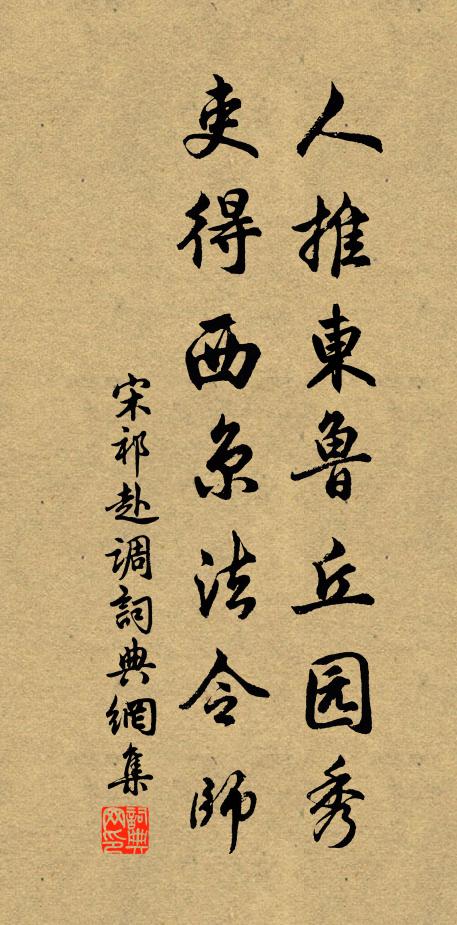 人推東魯丘园秀
吏得西京法令師
宋祁赴調詞典網集
詞典网印